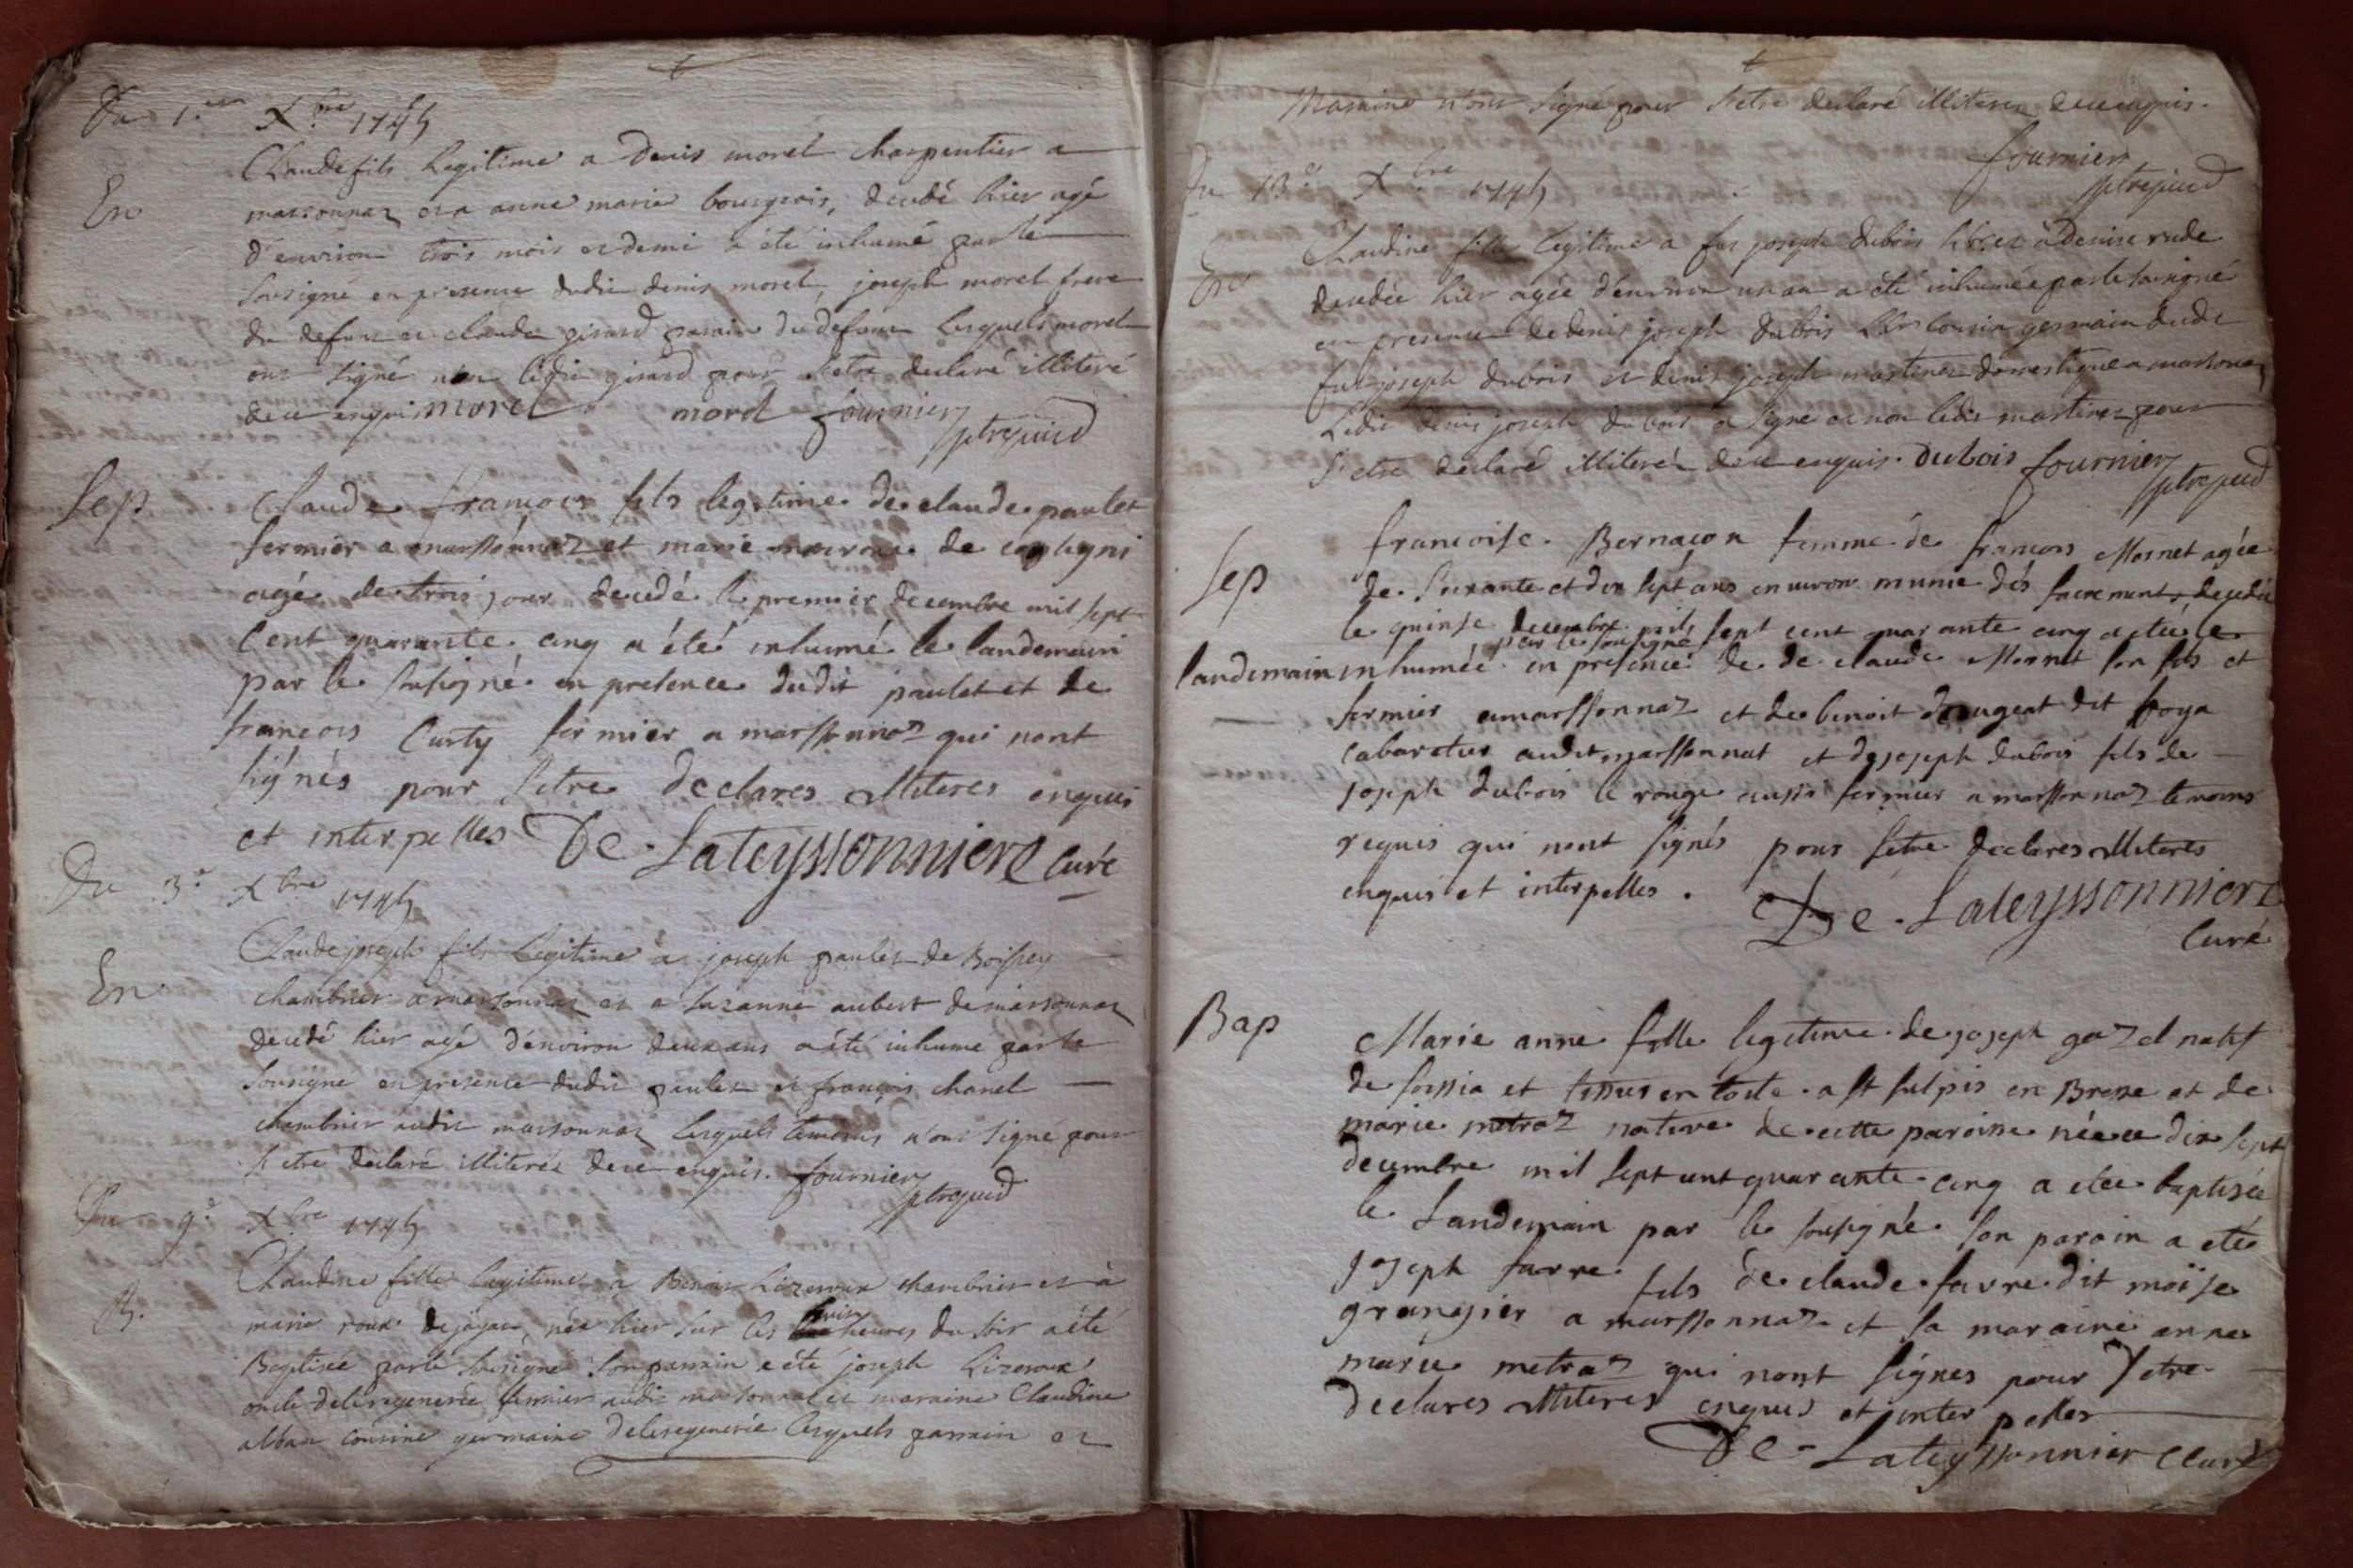 Du 1.er Xbre 1745
En
Claude fils legitime a denis morel charpentier a
marsonnaz et a anne marie bourgeois, decedé hier agé
d'environ trois mois et demi a été inhumé par le
sousigné en presence dudit denis morel, joseph morel frere
du defunt et claude girard parain du defunt lesquels morel
ont signé non ledit girard pour s'etre declaré illiteré
de ce enquis morel morel fournier ptre vicd
Sep
Claude françois fils legitime de claude paulet
fermier a marssonnaz et marie de coligni
agé de trois jour decedé le premier decembre mil sept
cent quarante cinq a été inhumé le landemain
par le sousigné en presence dudit paulet et de
francois Curty fermier a marssonnaz qui nont
signés pour setre declares illiteres enquis
et interpelles De Lateyssonniere Curé
Du 3.e Xbre 1745
En
Claude joseph fils legitime a joseph paulet de Boissey
chambrier a marsonnaz et a suzanne aubert de marsonnaz
decedé hier agé d'environ deux ans a été inhumé par le
sousigné en presence dudit paulet et françois chanel
chambrier audit marsonnaz lesquels temoins n'ont signé pour
s'etre declaré illiterés de ce enquis. fournier ptre vicd
Du 9.e Xbre 1745
B.
Claudine fille legitime a Benoit Lizeroux chambrier et à
marie roux de jayac, née hier sur les huit heures du soir a été
Baptisée par le sousigné son parrain a été joseph Lizeroux
oncle de la regenerée fermier audit marsonnaz et maraine Claudine
alban cousine germaine de la regenerée lesquels parrain et
Maraine n'ont signé pour s'etre declaré illiterés de ce enquis.
fournier
ptre vicd
Du 13.e Xbre 1745
En
Claudine fille legitime a feu joseph dubois et a Denise rude
decedée hier agée d'environ un an a été inhumée par le sousigné
en presence de denis joseph dubois cousin germain dudit
feu joseph dubois et denis joseph martinet domestique a marsonnaz
Ledit denis joseph dubois a signé et non ledit martinet pour
s'etre declaré illiteré de ce enquis. Dubois fournier
ptre vicd
Sep
francoise Bernaçon femme de francois Mornet agée
de soixante et dix sept ans environ munie des sacrements decedée
le quinse decembre mil sept cent quarante cinq a étée le
par le sousigné
landemain inhumée en presence de de claude Mornet son fils et
fermier a marssonnaz et de benoit dit
cabaretier audit marssonnat et de joseph dubois fils de
joseph dubois le rouge aussi fermier a marssonnaz temoins
requis qui nont signés pour setre declares illiteres
enquis et interpelles.
De Lateyssonniere
Curé
Bap
Marie anne fille legitime de joseph natif
de et tissier en toile a st sulpis en Bresse et de
marie metraz native de cette paroisse née ce dix sept
decembre mil sept cent quarante cinq a étée baptisée
le landemain par le sousigné son parain a eté
joseph favre fils de claude favre dit moïse
grangier a marssonnaz et sa maraine anne
marie metraz qui nont signes pour setre
declares illiteres enquis et interpelles
De Lateyssonnier Curé